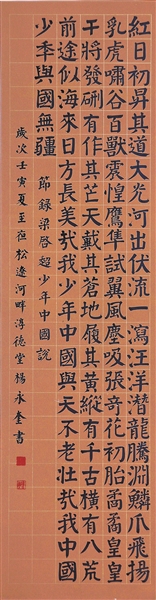 紅日初昇其道大光河出伏流一瀉汪洋潛龍騰淵鱗爪飛揚
乳虎嘯谷百獸震惶鷹隼試翼風塵吸張奇花初胎矞矞皇皇
干將發硎有作其芒天戴其蒼地履其黃縱有千古橫有八荒
前途似海來日方長美哉我少年中國與天不老壯哉我中國
少年與國無疆 節錄梁啓超少年中國說
歲次壬寅夏至松遼河畔淳德堂楊永奎書